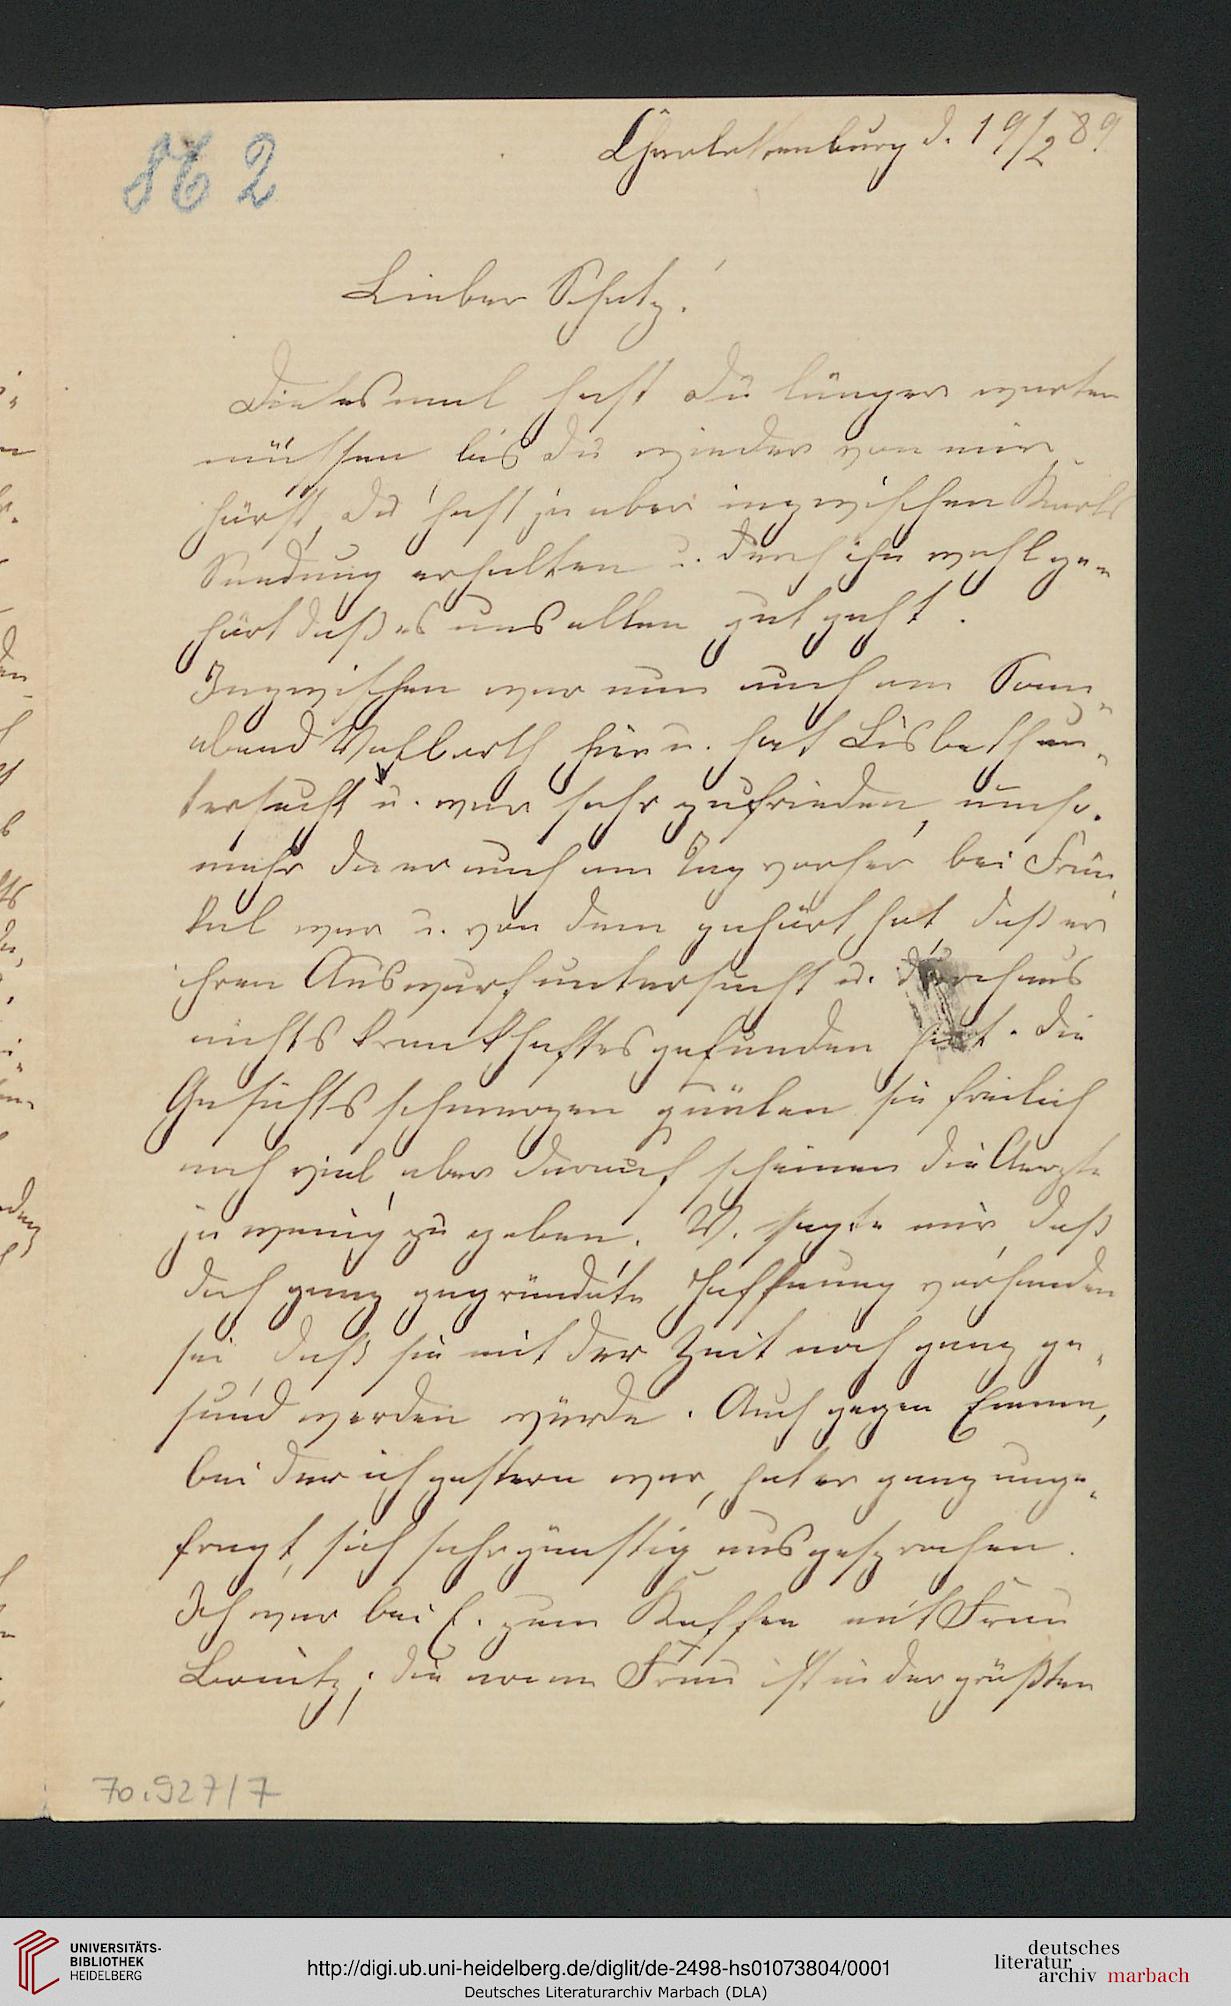 Charlottenburg d. 19/2 89
862
Lieber Schatz!
Diesesmal hast Du länger warten
müssen bis Du wieder von mir
hörst, Du hast ja aber inzwischen Karls
Sendung erhalten u. durch ihn wohl ge-
hört daß es uns allen gut geht.
Inzwischen war nun auch am Sonn-
abend Vollarth hier u. hat Lisbeth un-
tersucht u. war sehr zufrieden, umso-
mehr da er auch am Tag vorher bei Frän-
kel war u. von dem gehört hat, daß er
ihren Auswurf untersucht u. durchaus
nichts krankhaftes gefunden hat. Die
Gesichtsschmerzen quälen sie freilich
noch viel, aber darauf scheinen die Aerzte
ja wenig zu geben. V. sagte mir, daß
doch ganz gegründete Hoffnung vorhanden
sei, daß sie mit der Zeit noch ganz ge-
sund werden würde. Auch gegen Emma,
bei der ich gestern war, hat er ganz unge-
fragt, sich sehr günstig ausgesprochen.
Ich war bei E. zum Kaffee mit Frau
die arme Frau ist in der größten
70.927/7
UNIVERSITÄTS-
BIBLIOTHEK
HEIDELBERG
http://digi.ub.uni-heidelberg.de/diglit/de-2498-hs01073804/0001
Deutsches Literaturarchiv Marbach (DLA)
deutsches
literatur
archiv marbach